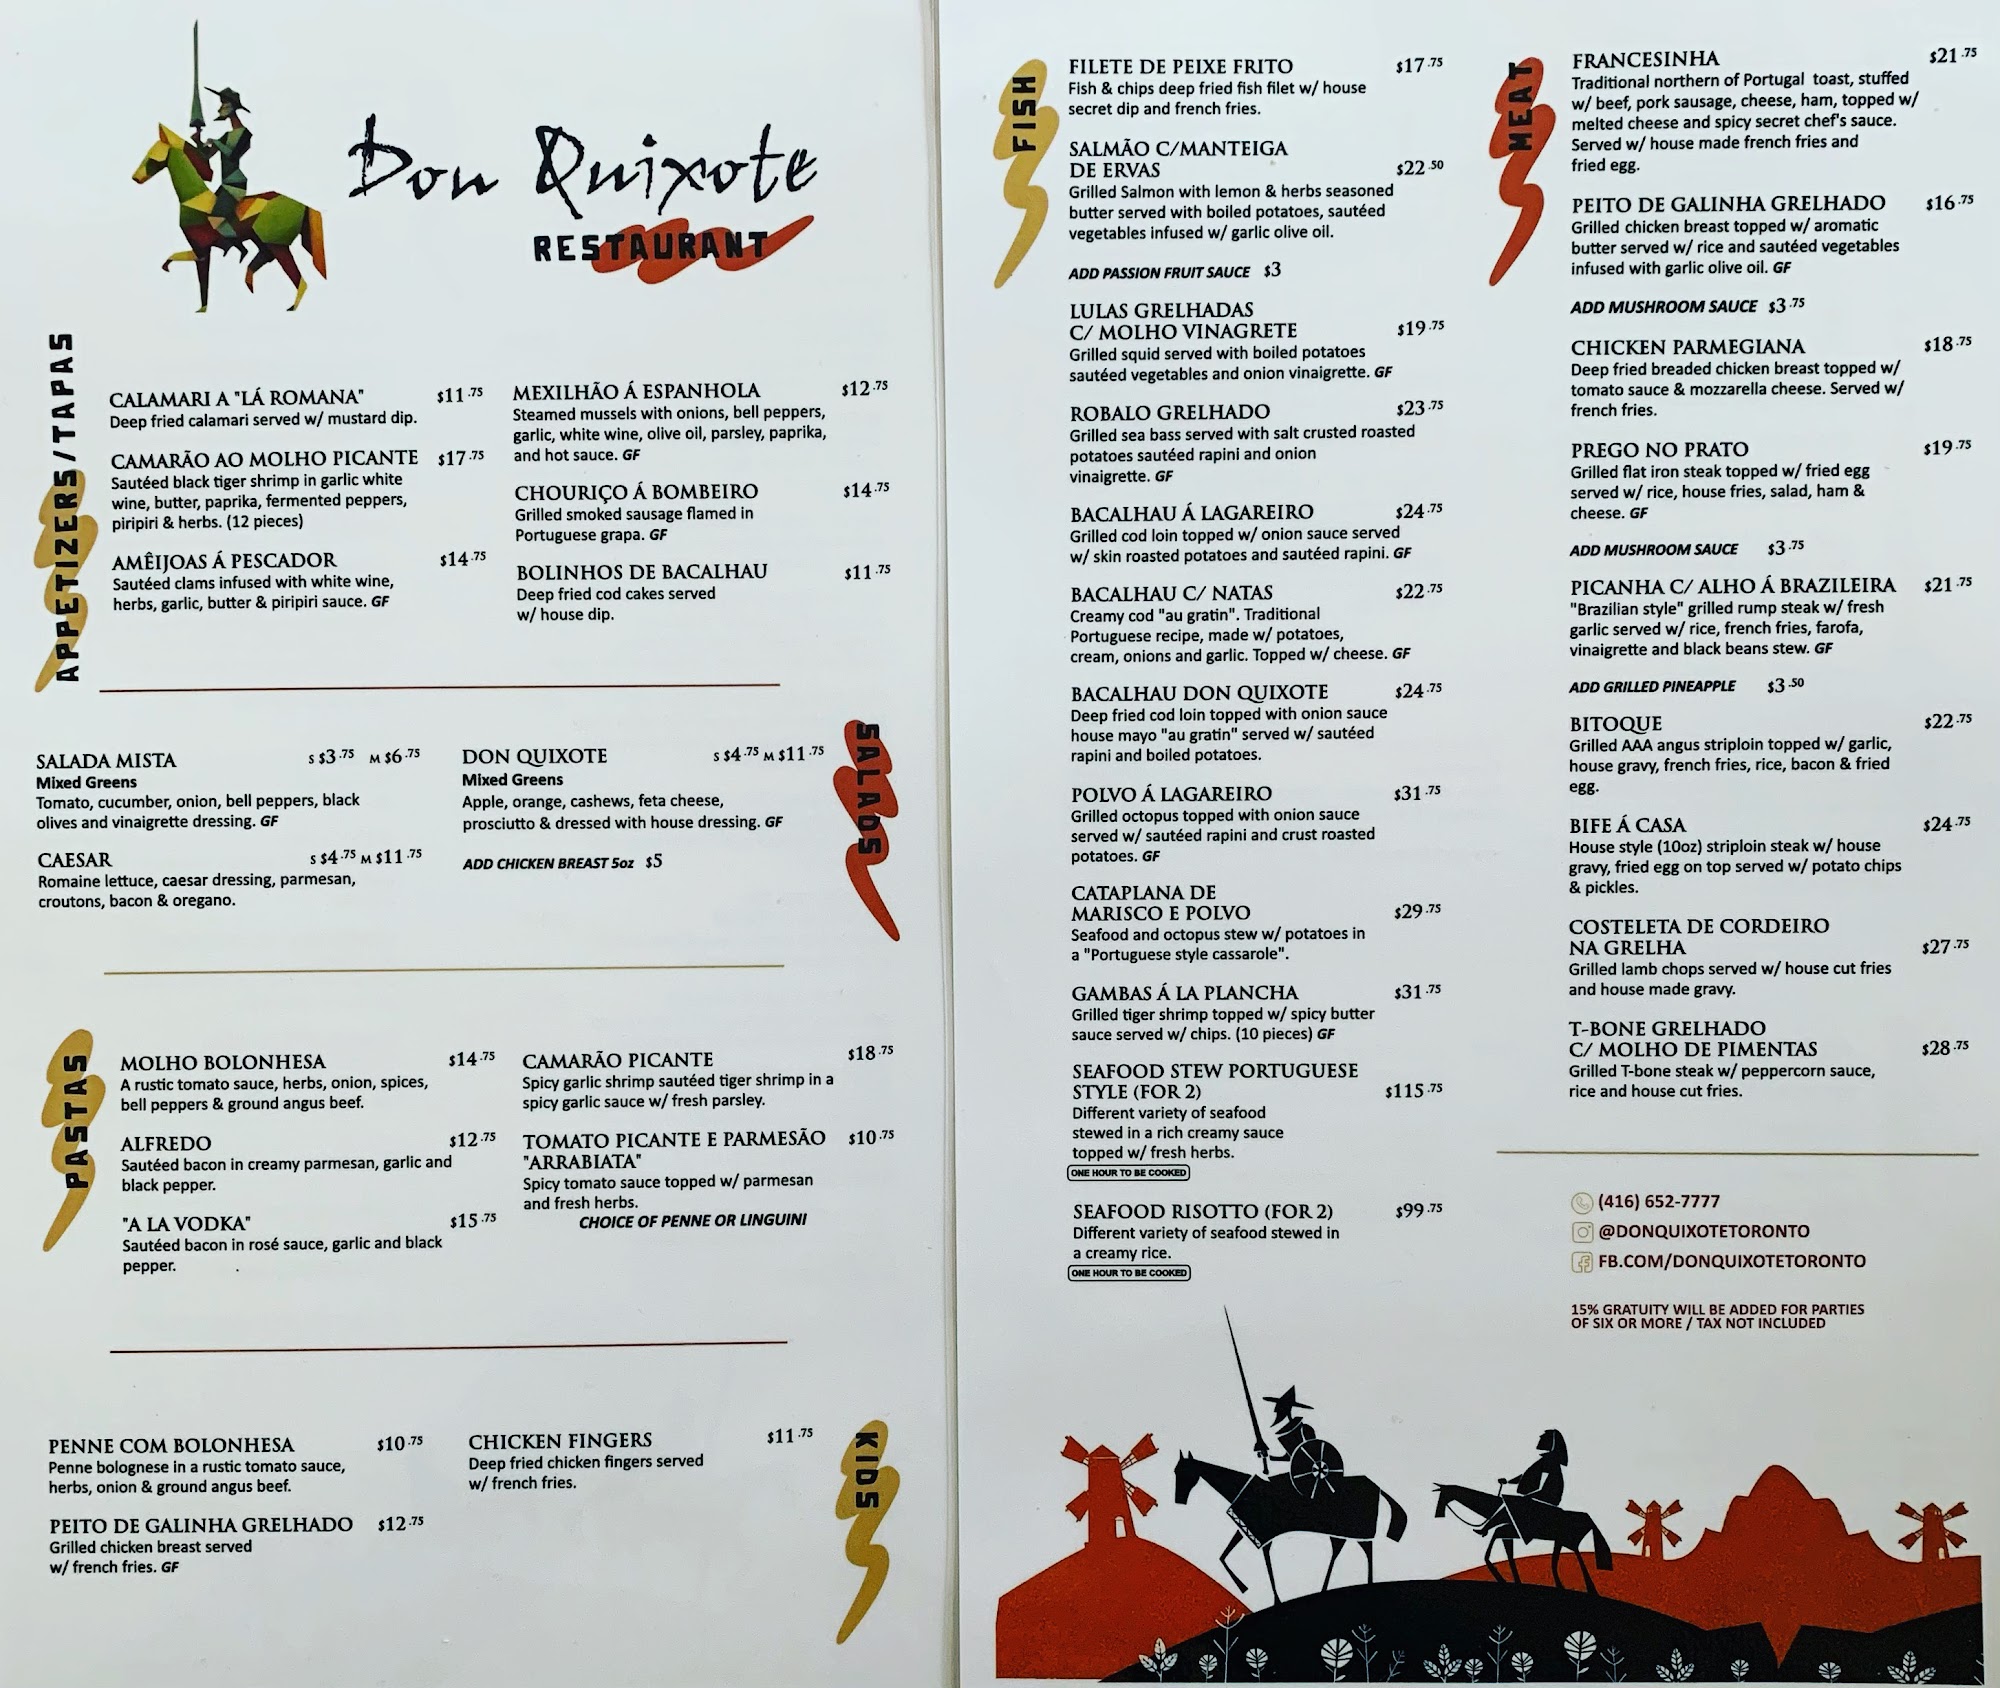 Don Quixote
RESTAURANT
APPETIZERS/TAPAS
CALAMARI A "LÁ ROMANA" $11.75
Deep fried calamari served w/ mustard dip.
CAMARÃO AO MOLHO PICANTE $17.75
Sautéed black tiger shrimp in garlic white
wine, butter, paprika, fermented peppers,
piripiri & herbs. (12 pieces)
AMÊIJOAS Á PESCADOR $14.75
Sautéed clams infused with white wine,
herbs, garlic, butter & piripiri sauce. GF
MEXILHÃO Á ESPANHOLA $12.75
Steamed mussels with onions, bell peppers,
garlic, white wine, olive oil, parsley, paprika,
and hot sauce. GF
CHOURIÇO Á BOMBEIRO $14.75
Grilled smoked sausage flamed in
Portuguese grapa. GF
BOLINHOS DE BACALHAU $11.75
Deep fried cod cakes served
w/ house dip.
SALADS
SALADA MISTA S $3.75 M $6.75
Mixed Greens
Tomato, cucumber, onion, bell peppers, black
olives and vinaigrette dressing. GF
CAESAR S $4.75 M $11.75
Romaine lettuce, caesar dressing, parmesan,
croutons, bacon & oregano.
DON QUIXOTE S $4.75 M $11.75
Mixed Greens
Apple, orange, cashews, feta cheese,
prosciutto & dressed with house dressing. GF
ADD CHICKEN BREAST 5oz $5
PASTAS
MOLHO BOLONHESA $14.75
A rustic tomato sauce, herbs, onion, spices,
bell peppers & ground angus beef.
ALFREDO $12.75
Sautéed bacon in creamy parmesan, garlic and
black pepper.
"A LA VODKA" $15.75
Sautéed bacon in rosé sauce, garlic and black
pepper.
CAMARÃO PICANTE $18.75
Spicy garlic shrimp sautéed tiger shrimp in a
spicy garlic sauce w/ fresh parsley.
TOMATO PICANTE E PARMESÃO $10.75
"ARRABIATA"
Spicy tomato sauce topped w/ parmesan
and fresh herbs.
CHOICE OF PENNE OR LINGUINI
KIDS
PENNE COM BOLONHESA $10.75
Penne bolognese in a rustic tomato sauce,
herbs, onion & ground angus beef.
PEITO DE GALINHA GRELHADO $12.75
Grilled chicken breast served
w/ french fries. GF
CHICKEN FINGERS $11.75
Deep fried chicken fingers served
w/ french fries.
FISH
FILETE DE PEIXE FRITO $17.75
Fish & chips deep fried fish filet w/ house
secret dip and french fries.
SALMÃO C/MANTEIGA
DE ERVAS $22.50
Grilled Salmon with lemon & herbs seasoned
butter served with boiled potatoes, sautéed
vegetables infused w/ garlic olive oil.
ADD PASSION FRUIT SAUCE $3
LULAS GRELHADAS
C/ MOLHO VINAGRETE $19.75
Grilled squid served with boiled potatoes
sautéed vegetables and onion vinaigrette. GF
ROBALO GRELHADO $23.75
Grilled sea bass served with salt crusted roasted
potatoes sautéed rapini and onion
vinaigrette. GF
BACALHAU Á LAGAREIRO $24.75
Grilled cod loin topped w/ onion sauce served
w/ skin roasted potatoes and sautéed rapini. GF
BACALHAU C/ NATAS $22.75
Creamy cod "au gratin". Traditional
Portuguese recipe, made w/ potatoes,
cream, onions and garlic. Topped w/ cheese. GF
BACALHAU DON QUIXOTE $24.75
Deep fried cod loin topped with onion sauce
house mayo "au gratin" served w/ sautéed
rapini and boiled potatoes.
POLVO Á LAGAREIRO $31.75
Grilled octopus topped with onion sauce
served w/ sautéed rapini and crust roasted
potatoes. GF
CATAPLANA DE
MARISCO E POLVO $29.75
Seafood and octopus stew w/ potatoes in
a "Portuguese style cassarole".
GAMBAS Á LA PLANCHA $31.75
Grilled tiger shrimp topped w/ spicy butter
sauce served w/ chips. (10 pieces) GF
SEAFOOD STEW PORTUGUESE
STYLE (FOR 2) $115.75
Different variety of seafood
stewed in a rich creamy sauce
topped w/ fresh herbs.
ONE HOUR TO BE COOKED
SEAFOOD RISOTTO (FOR 2) $99.75
Different variety of seafood stewed in
a creamy rice.
ONE HOUR TO BE COOKED
MEAT
FRANCESINHA $21.75
Traditional northern of Portugal toast, stuffed
w/ beef, pork sausage, cheese, ham, topped w/
melted cheese and spicy secret chef's sauce.
Served w/ house made french fries and
fried egg.
PEITO DE GALINHA GRELHADO $16.75
Grilled chicken breast topped w/ aromatic
butter served w/ rice and sautéed vegetables
infused with garlic olive oil. GF
ADD MUSHROOM SAUCE $3.75
CHICKEN PARMEGIANA $18.75
Deep fried breaded chicken breast topped w/
tomato sauce & mozzarella cheese. Served w/
french fries.
PREGO NO PRATO $19.75
Grilled flat iron steak topped w/ fried egg
served w/ rice, house fries, salad, ham &
cheese. GF
ADD MUSHROOM SAUCE $3.75
PICANHA C/ ALHO Á BRAZILEIRA $21.75
"Brazilian style" grilled rump steak w/ fresh
garlic served w/ rice, french fries, farofa,
vinaigrette and black beans stew. GF
ADD GRILLED PINEAPPLE $3.50
BITOQUE $22.75
Grilled AAA angus striploin topped w/ garlic,
house gravy, french fries, rice, bacon & fried
egg.
BIFE Á CASA $24.75
House style (10oz) striploin steak w/ house
gravy, fried egg on top served w/ potato chips
& pickles.
COSTELETA DE CORDEIRO
NA GRELHA $27.75
Grilled lamb chops served w/ house cut fries
and house made gravy.
T-BONE GRELHADO
C/ MOLHO DE PIMENTAS $28.75
Grilled T-bone steak w/ peppercorn sauce,
rice and house cut fries.
(416) 652-7777
@DONQUIXOTETORONTO
FB.COM/DONQUIXOTETORONTO
15% GRATUITY WILL BE ADDED FOR PARTIES
OF SIX OR MORE / TAX NOT INCLUDED